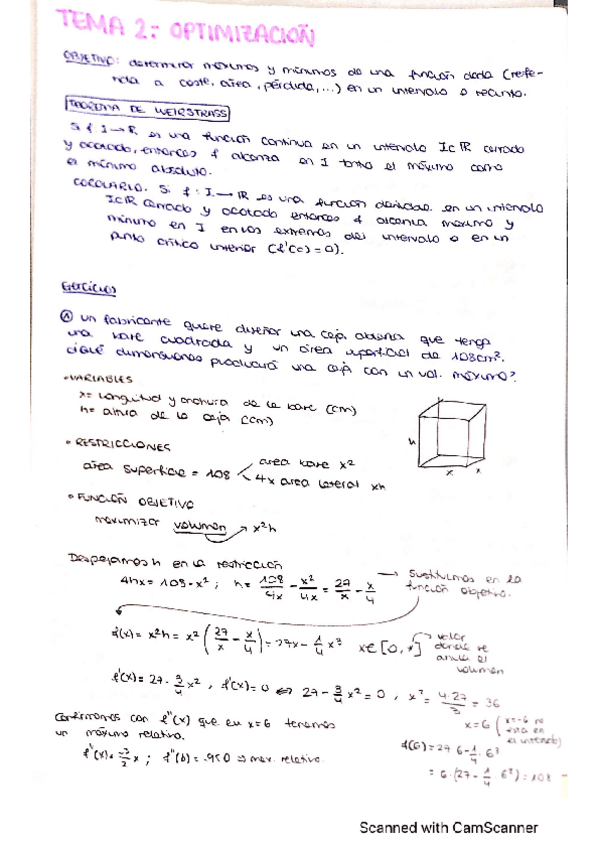 TEMA 2: OPTIMIZACIÓN
OBJETIVO: determinar máximos y mínimos de una función dada (refe-
rida a coste, área, pérdida, ...) en un intervalo o recinto.
TEOREMA DE WEIRSTRASS
Si f: I → R es una función continua en un intervalo I ⊂ R cerrado
y acotado, entonces f alcanza en I tanto el máximo como
el mínimo absoluto.
COROLARIO. Si f: I → R es una función derivable en un intervalo
I ⊂ R cerrado y acotado entonces f alcanza máximo y
mínimo en I en los extremos del intervalo o en un
punto crítico interior (f'(c) = 0).
EJERCICIOS
① Un fabricante quiere diseñar una caja abierta que tenga
una base cuadrada y un área superficial de 108cm².
¿Qué dimensiones producirá una caja con un vol. máximo?
• VARIABLES
x = longitud y anchura de la base (cm)
h = altura de la caja (cm)
h
x
x
• RESTRICCIONES
área superficie = 108
área base x²
4x área lateral xh
• FUNCIÓN OBJETIVO
maximizar volumen → x²h
Despejamos h en la restricción
4hx = 108 - x² ; h = 108/4x - x²/4x = 27/x - x/4
→ Sustituimos en la
función objetivo.
f(x) = x²h = x² (27/x - x/4) = 27x - 1/4 x³ x ∈ [0, *]
valor
donde se
anula el
volumen
f'(x) = 27 - 3/4 x² , f'(x) = 0 ⇔ 27 - 3/4 x² = 0 , x² = 4·27/3 = 36
x = 6 (x = -6 no
está en
el intervalo)
Confirmamos con f''(x) que en x = 6 tenemos
un máximo relativo.
f''(x) = -3/2 x ; f''(6) = -9 < 0 ⇒ max. relativo.
f(6) = 27·6 - 1/4 · 6³
= 6·(27 - 1/4 · 6²) = 108
Scanned with CamScanner